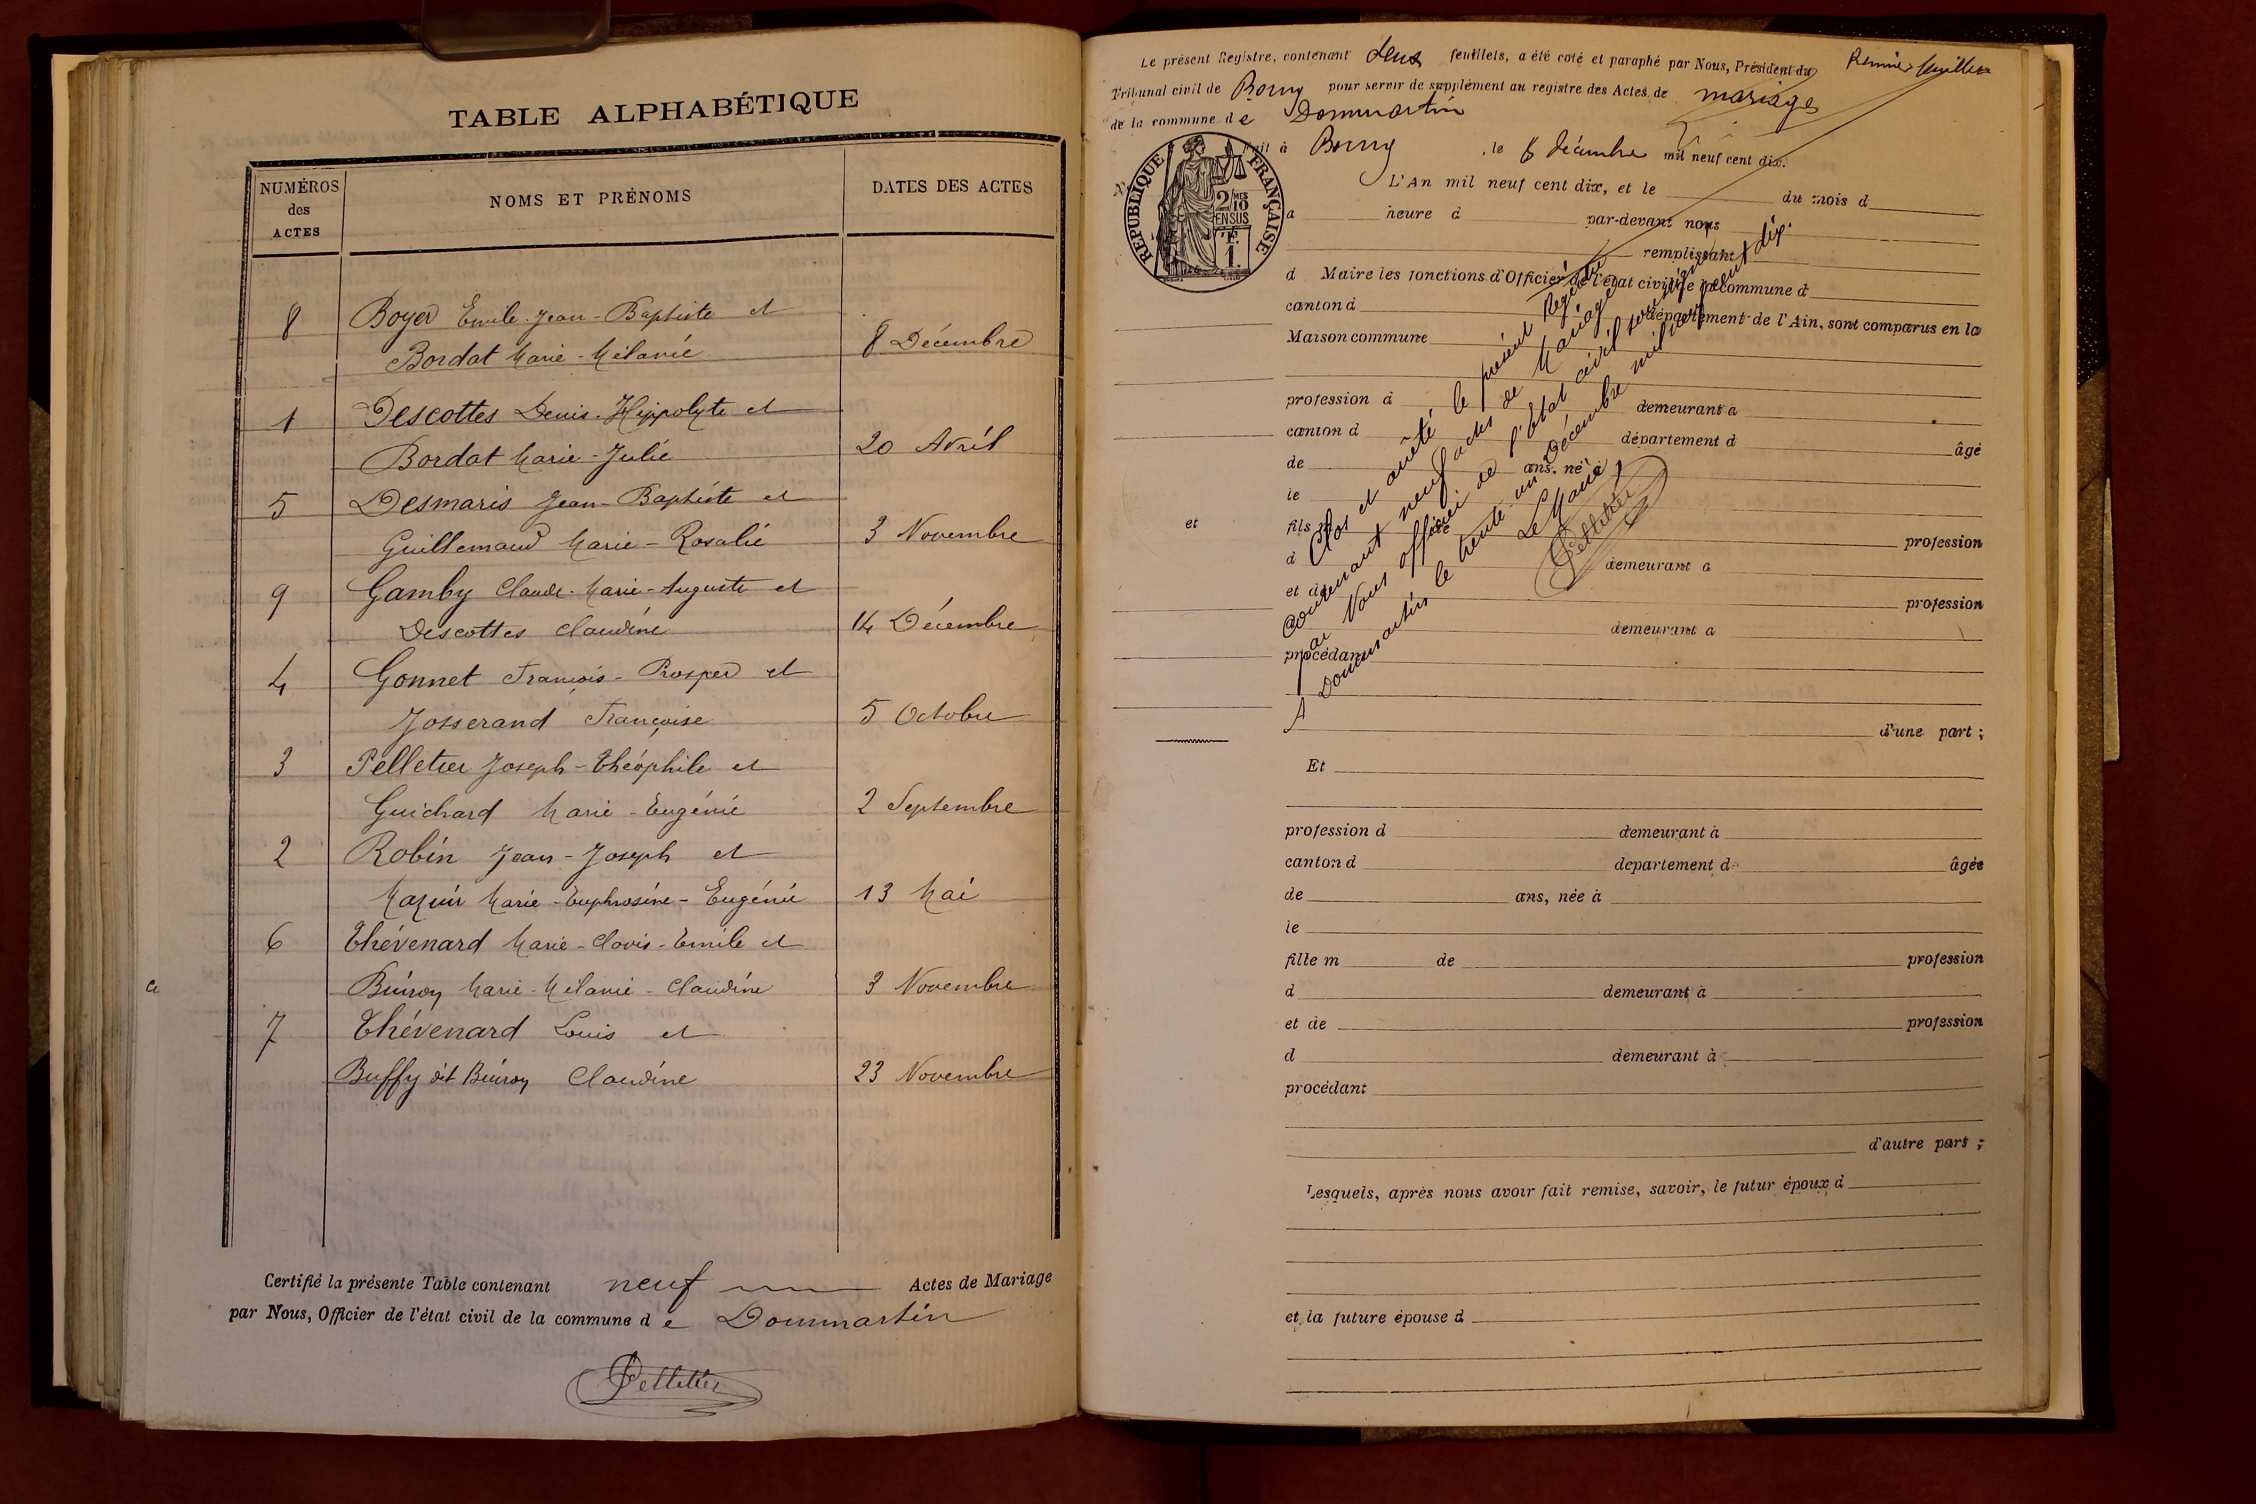 TABLE ALPHABÉTIQUE
NUMÉROS des ACTES
NOMS ET PRÉNOMS
DATES DES ACTES
8 Boyer Emile-Jean-Baptiste et
Bordat Marie-Mélanie 8 Décembre
1 Descottes Denis-Hippolyte et
Bordat Marie-Julie 20 Avril
5 Desmaris Jean-Baptiste et
Guillemaud Marie-Rosalie 3 Novembre
9 Gamby Claude-Marie-Auguste et
Descottes Claudine 14 Décembre
4 Gonnet François-Prosper et
Josserand Françoise 5 Octobre
3 Pelletier Joseph-Théophile et
Guichard Marie-Eugénie 2 Septembre
2 Robin Jean-Joseph et
Mazuir Marie-Euphrosine-Eugénie 13 Mai
6 Thévenard Marie-Clovis-Emile et
Buiron Marie-Mélanie-Claudine 3 Novembre
7 Thévenard Louis et
Buffy dit Buiron Claudine 23 Novembre
Certifié la présente Table contenant neuf Actes de Mariage
par Nous, Officier de l'état civil de la commune de Dommartin
Pelletier
Premier feuillet
Le présent Registre, contenant deux feuillets, a été coté et paraphé par Nous, Président du
Tribunal civil de Bourg pour servir de supplément au registre des Actes de mariages
de la commune de Dommartin
Fait à Bourg, le 8 décembre mil neuf cent dix.
RÉPUBLIQUE FRANÇAISE
2/10 MES
EN SUS
1 F.
L'An mil neuf cent dix, et le du mois d
a heure d par-devant nous
remplissant
d Maire les fonctions d'Officier de l'état civil de la commune d
canton d département de l'Ain, sont comparus en la
Maison commune
profession d demeurant à
canton d département d âgé
de ans, né à
le
et
fils m de profession
d demeurant à
et de profession
demeurant à
procédant
d'une part ;
Clos et arrêté le présent Registre
contenant neuf actes de Mariage
par Nous officier de l'état civil soussigné
A Dommartin le trente-un Décembre mil neuf cent dix.
Le Maire,
Pelletier
Et
profession d demeurant à
canton d département d âgée
de ans, née à
le
fille m de profession
d demeurant à
et de profession
d demeurant à
procédant
d'autre part ;
Lesquels, après nous avoir fait remise, savoir, le futur époux d
et la future épouse d